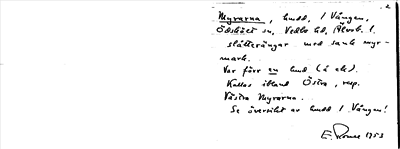 2
Myrarna, hmd, 1 Vången,
Ödshöts sn, Vedbo hd, Älvsb. l.
slåtterängar med sank myr-
mark.
Var förr en hmd (å ek).
Kallas ibland Östra, resp.
Västra Myrarna.
Se översikt av hmdd 1 Vången!
E. 1953